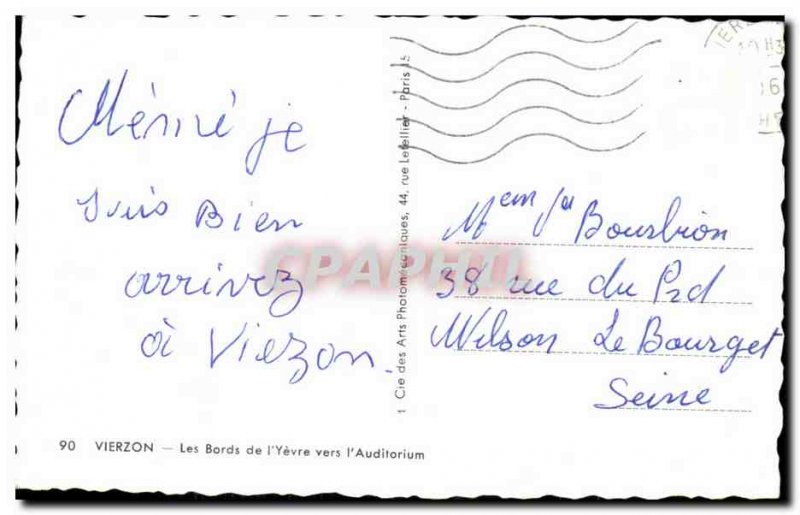 Mémé je
suis Bien
arrivez
à Viezon.
90 VIERZON — Les Bords de l'Yèvre vers l'Auditorium
1 Cie des Arts Photomécaniques, 44, rue Letellier - Paris 15
Bourbion
38 rue du Prd
Wilson Le Bourget
Seine
CPAPHIL